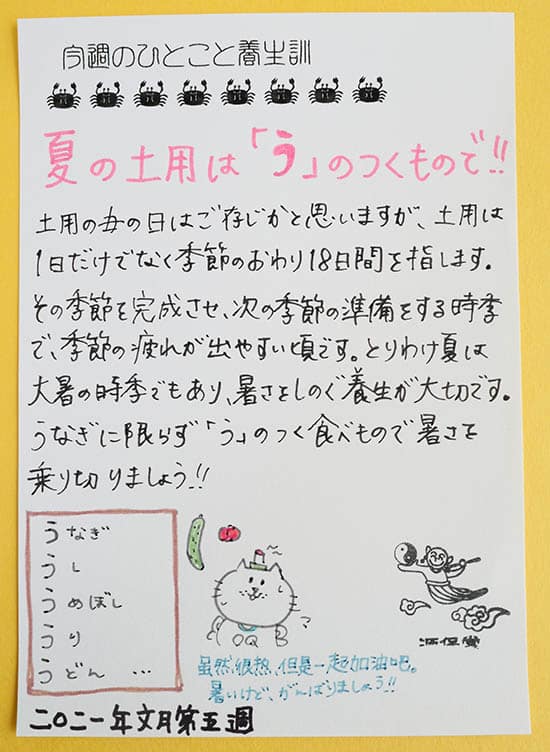 今週のひとこと養生訓
夏の土用は「う」のつくもので!!
土用の丑の日はご存じかと思いますが、土用は
1日だけでなく季節のおわり18日間を指します。
その季節を完成させ、次の季節の準備をする時季
で、季節の疲れが出やすい頃です。とりわけ夏は
大暑の時季でもあり、暑さをしのぐ養生が大切です。
うなぎに限らず「う」のつく食べもので暑さを
乗り切りましょう!!
うなぎ
うし
うめぼし
うり
うどん …
虽然很热、但是一起加油吧。
暑いけど、がんばりましょう!!
二〇二一年文月第五週